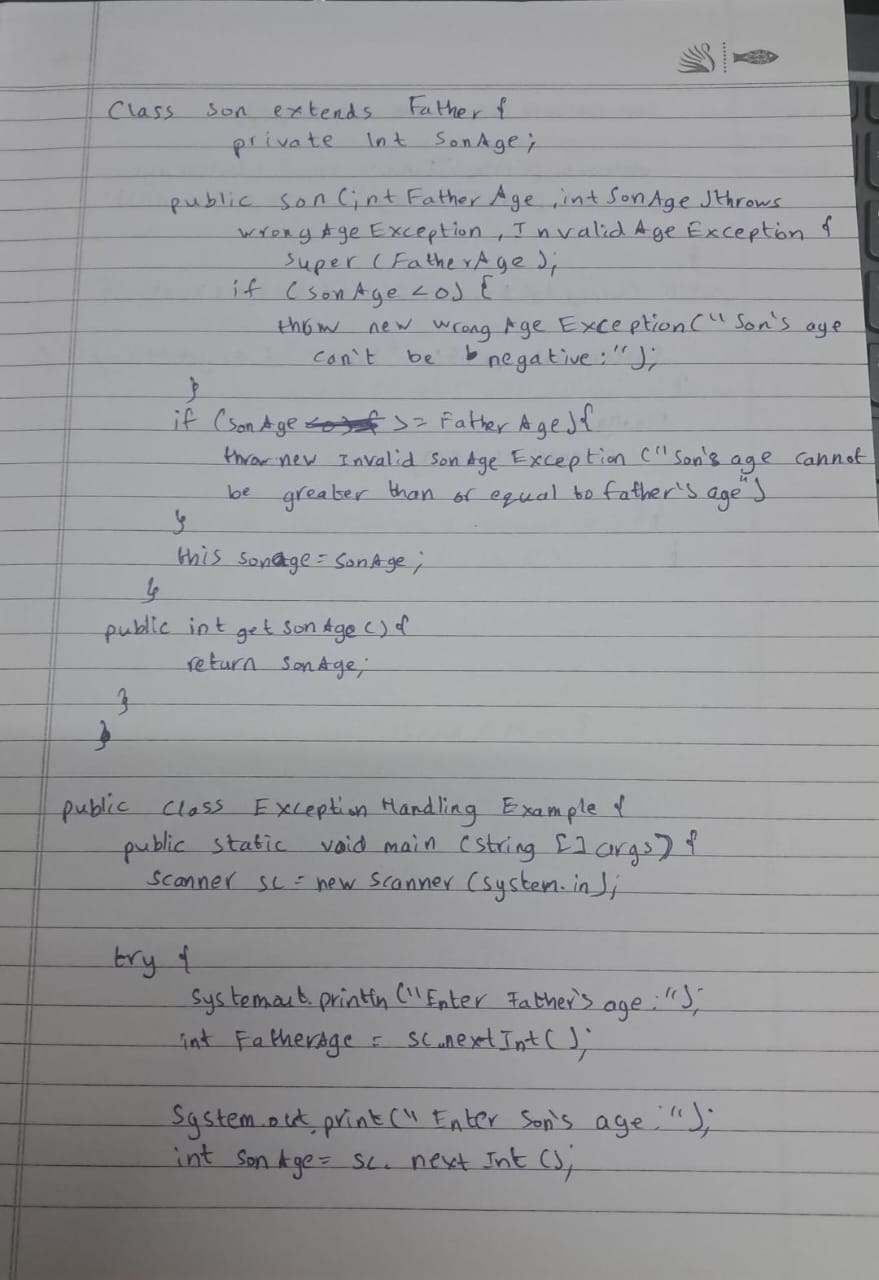 Class son extends Father {
private Int SonAge;
public son (int Father Age, int SonAge) throws
wrong Age Exception, Invalid Age Exception {
Super (FatherAge);
if (sonAge <0) {
throw new wrong Age Exception (" Son's age
can't be negative:");
}
if (sonAge >= Father Age) {
throw new Invalid Son Age Exception (" Son's age cannot
be greater than or equal to father's age")
}
this sonage = SonAge;
}
public int get Son Age () {
return SonAge;
}
}
public class Exception Handling Example {
public static void main (string [] args) {
scanner sc = new scanner (system.in);
try {
System.out.println ("Enter Father's age:");
int FatherAge = sc.nextInt();
System.out.print (" Enter Son's age:");
int Son Age = sc. next Int ();